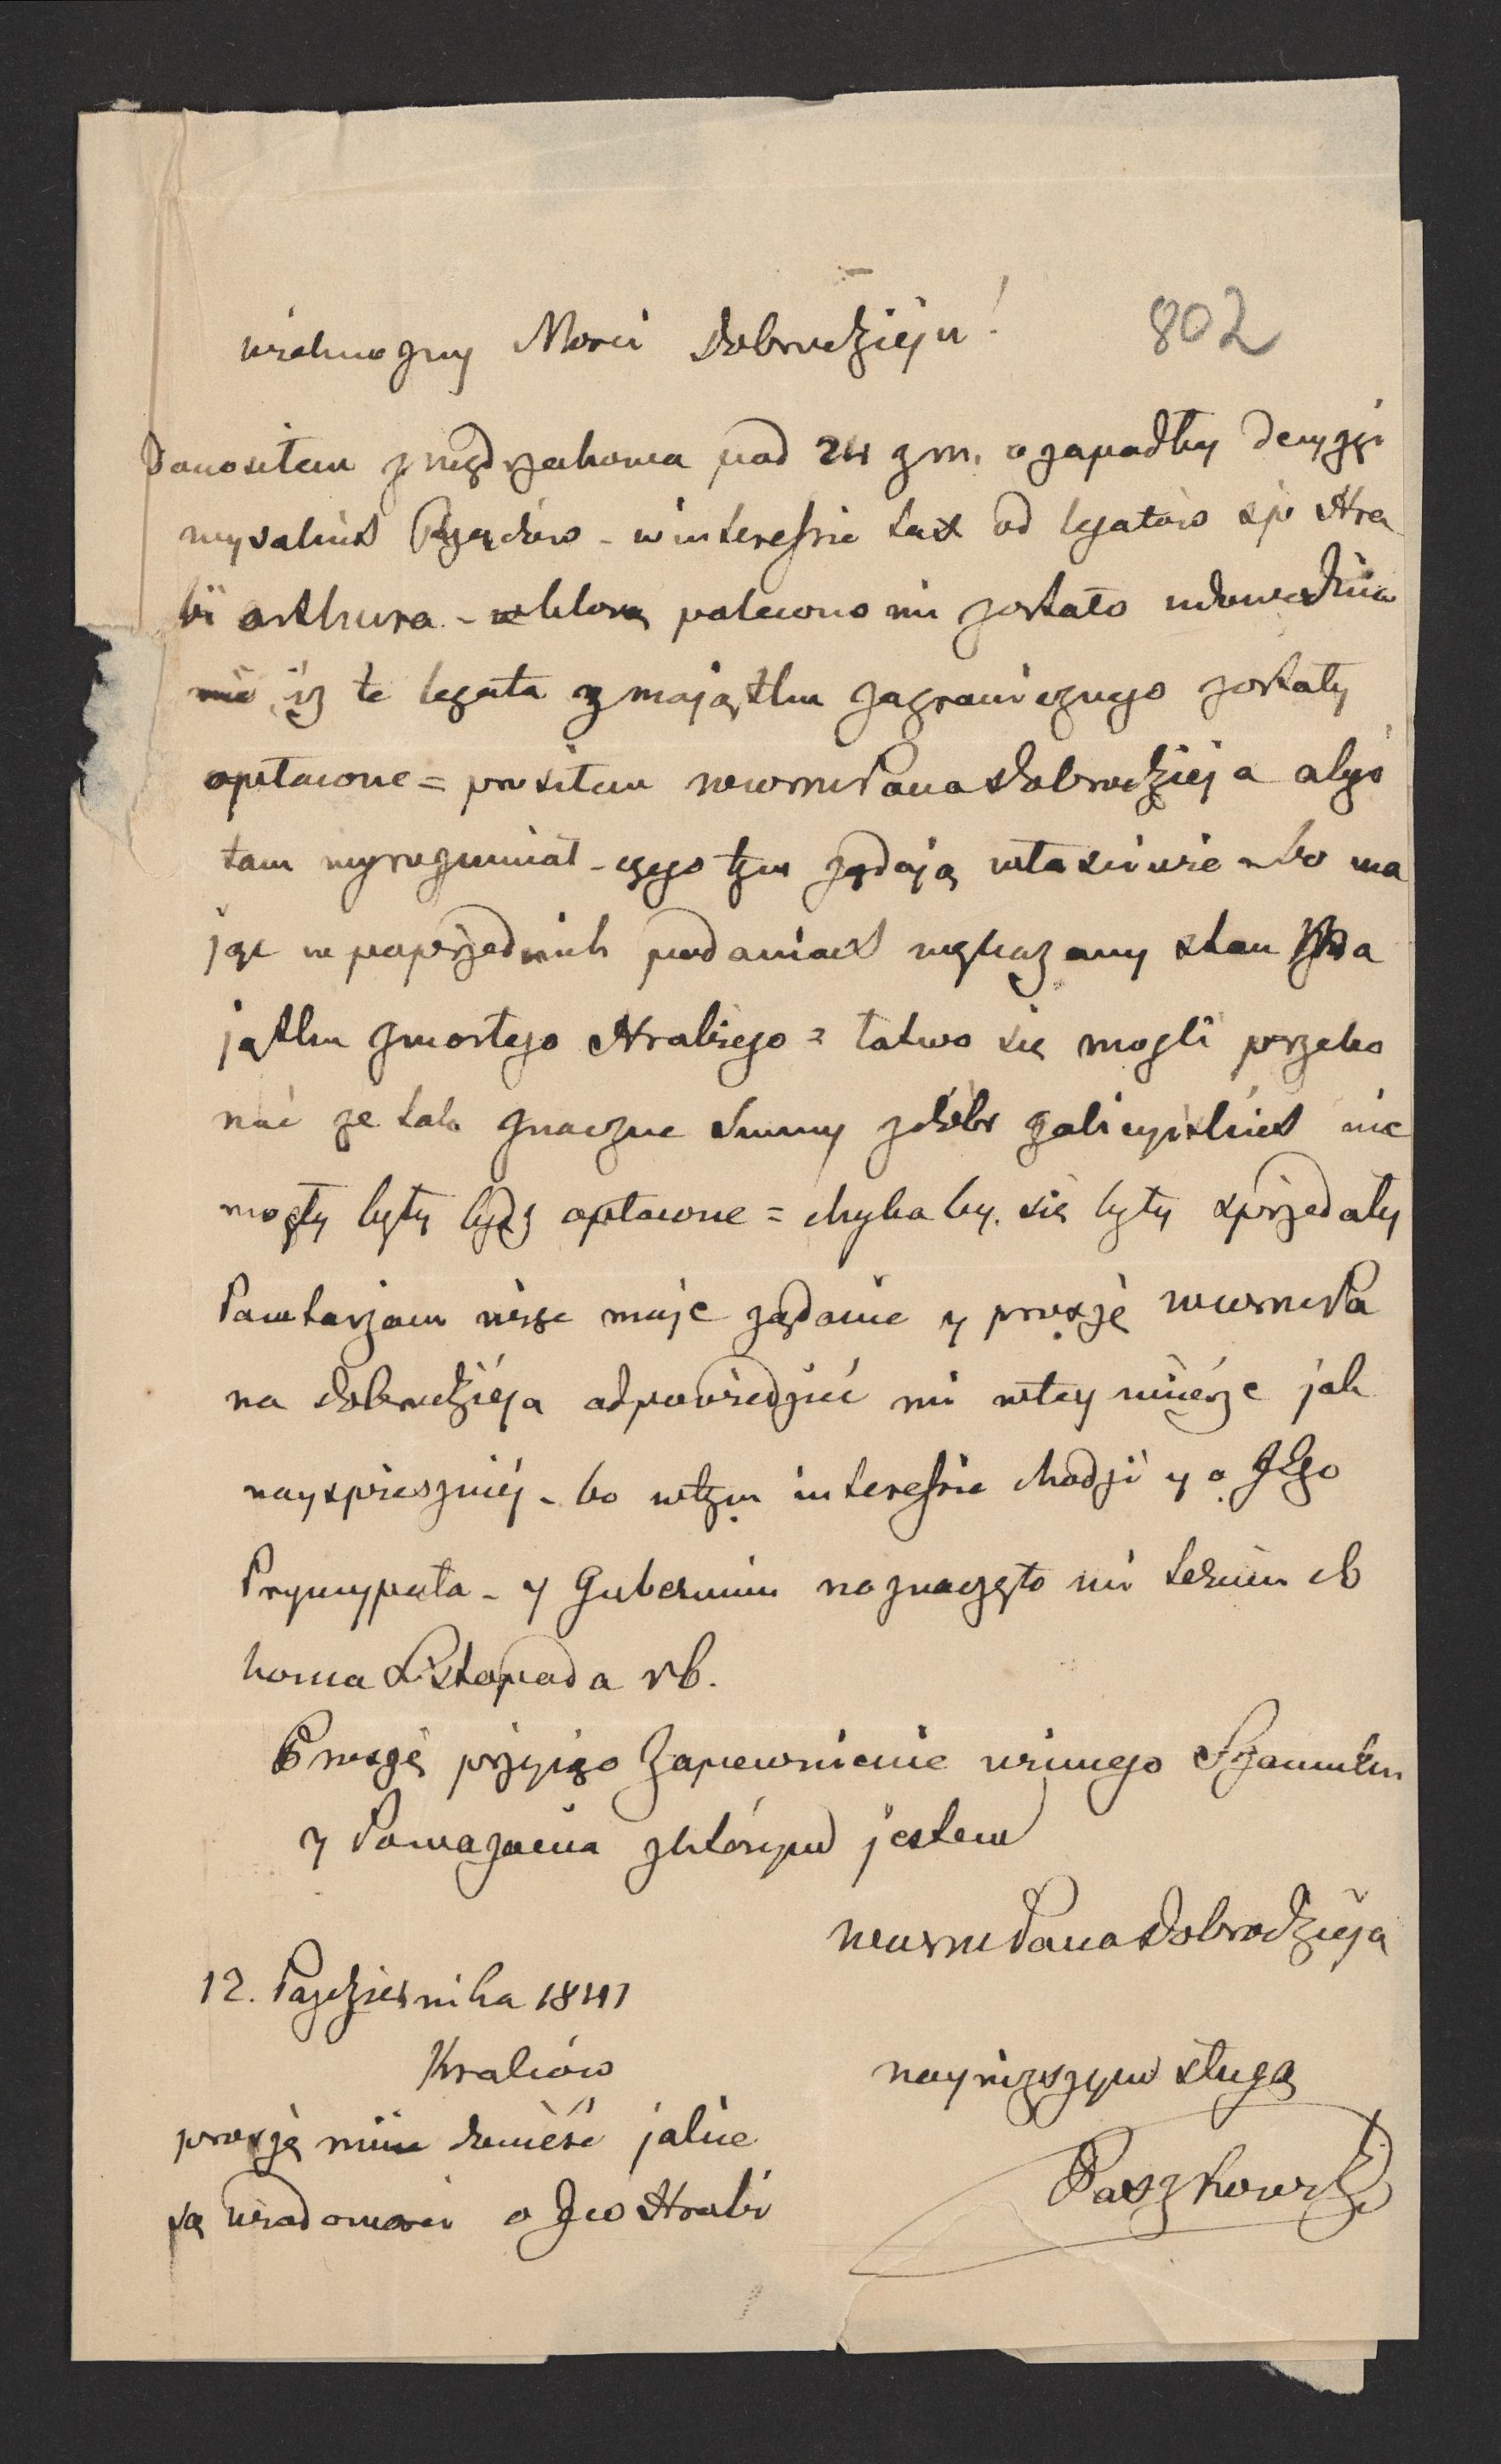 802
wielmozny Mosci Dobrodzieju!
Donosilem z mędrzechowa pod 24 zm. o zapadłey decyzyi
wysokich Rządów - w interessie tax od legatów śp Hra
bi arthura - w którey polecono mi zostało udowodnie
nie, iz te legata z majątku zagranicznego zostały
opłacone = prosiłem Pana Dobrodzieja abyś
tam wyrozumiał - czego tem ządają własciwie - bo ma
jąc w poprzednich podaniach wykazany stan Ma
jątku zmarłego Hrabiego = łatwo się mogli przeko
nać ze tak znaczne Summy z dóbr galicyiskich nie
mogły były bydz opłacone = chyba by się były sprzedały
Powtarzam więc moje ządanie y proszę Pa
na Dobrodzieja odpowiedzieć mi w tey mierze jak
nayspieszniey - bo w tym interessie chodzi y o JEgo
Pryncypała - y Gubernium naznaczyło mi termin do
konca Listopada rb.
Proszę przyiąć Zapewnienie winnego Szacunku
y Powazania z którym jestem
Pana Dobrodzieja
12. Pazdziernika 1841
Kraków
nayniższym sługą
Paszkowski
proszę mnie donieść jakie
są wiadomosci o Jeo Hrabi